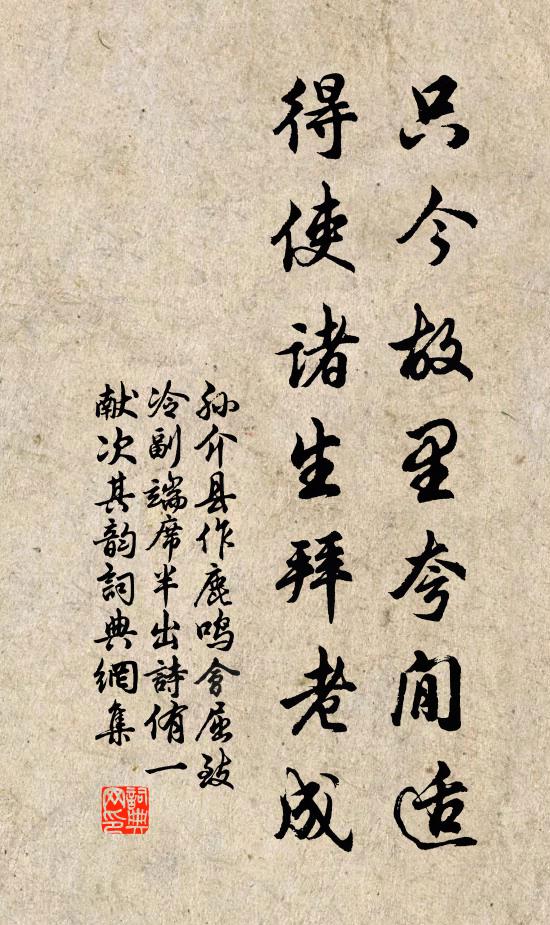 只今故里夸閒适
得使诸生拜老成
孙介县作鹿鸣会屈致
冷副端席半出詩侑一
献次其韵詞典網集
詞典
网印